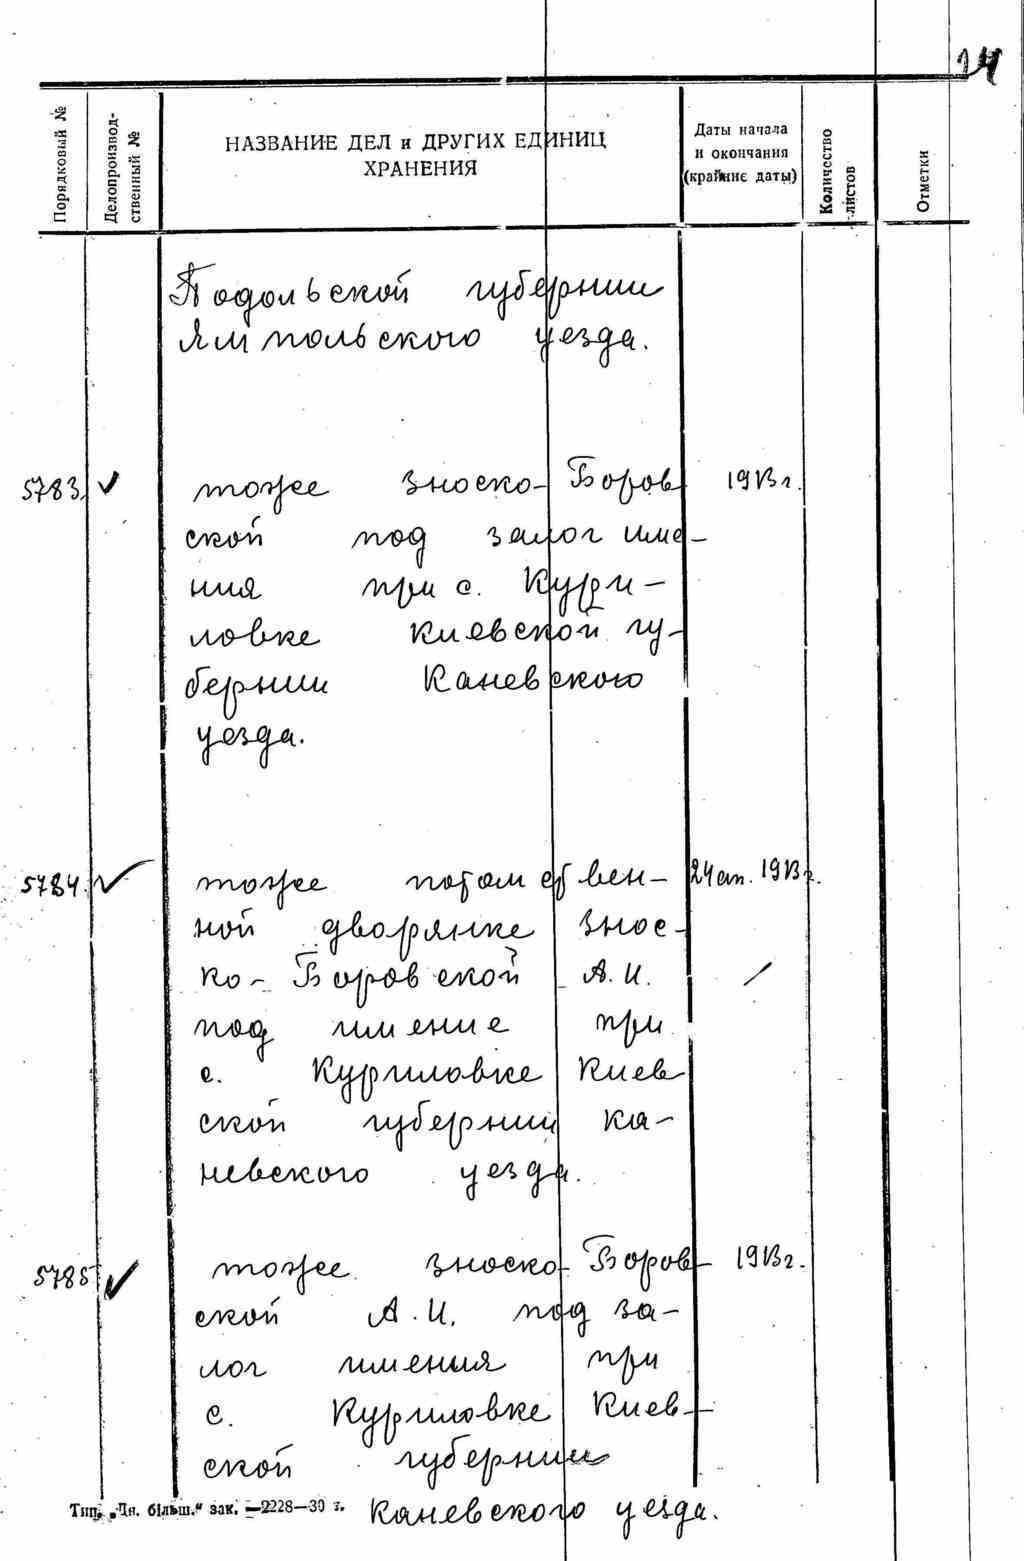 14
Порядковый №
Делопроизвод-
ственный №
НАЗВАНИЕ ДЕЛ и ДРУГИХ ЕДИНИЦ
ХРАНЕНИЯ
Даты начала
и окончания
(крайние даты)
Количество
листов
Отметки
Подольской губернии
Ямпольского уезда.
5783. тоже Зноско-Боров 1913 г.
ской под залог име-
ния при с. Кури-
ловке Киевской гу-
бернии Каневского
уезда.
5784. тоже потомствен- 24 ап. 1913 г.
ной дворянке Знос-
ко-Боровской А.И.
под имение при
с. Куриловке Киев
ской губернии Ка-
невского уезда.
5785 тоже Зноско-Боров- 1913 г.
ской А.И. под за-
лог имения при
с. Куриловке Киев-
ской губернии
Каневского уезда.
Тип. більш." зак. —2228—30 г.